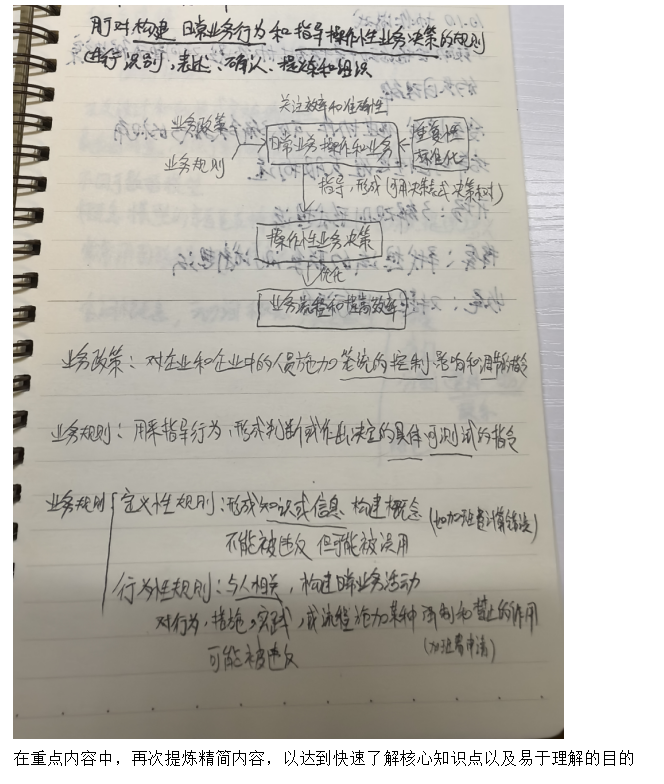 用对构建 日常业务行为和指导操作性业务决策的规则
进行识别,表述、确认、提炼和组织
关注效率和准确性
业务政策
业务规则
日常业务操作和业务
重复性
标准化
指导,形成(可用决策表或决策树)
操作性业务决策
优化
业务流程和提高效率
业务政策:对企业和企业中的人员施加笼统的控制、影响和调节的指令
业务规则:用来指导行为,形成判断或作出决定的具体可测试的指令
业务规则
定义性规则:形成知识或信息 构建概念(如加班费计算错误)
不能被违反 但可能被误用
行为性规则:与人相关,构建日常业务活动
对行为,措施,实践,或流程施加某种 强制和禁止的作用
(加班费申请)
可能被违反
在重点内容中,再次提炼精简内容,以达到快速了解核心知识点以及易于理解的目的